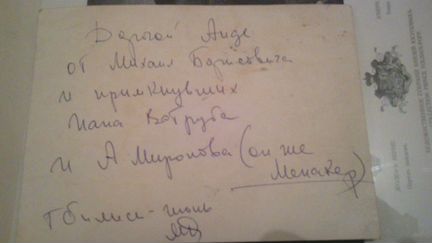 Дорогой Аиде
от Михаил Борисовича
и примкнувших
Пана Вотруба
и А Миронова (он же
Менакер)
Тбилиси - июнь